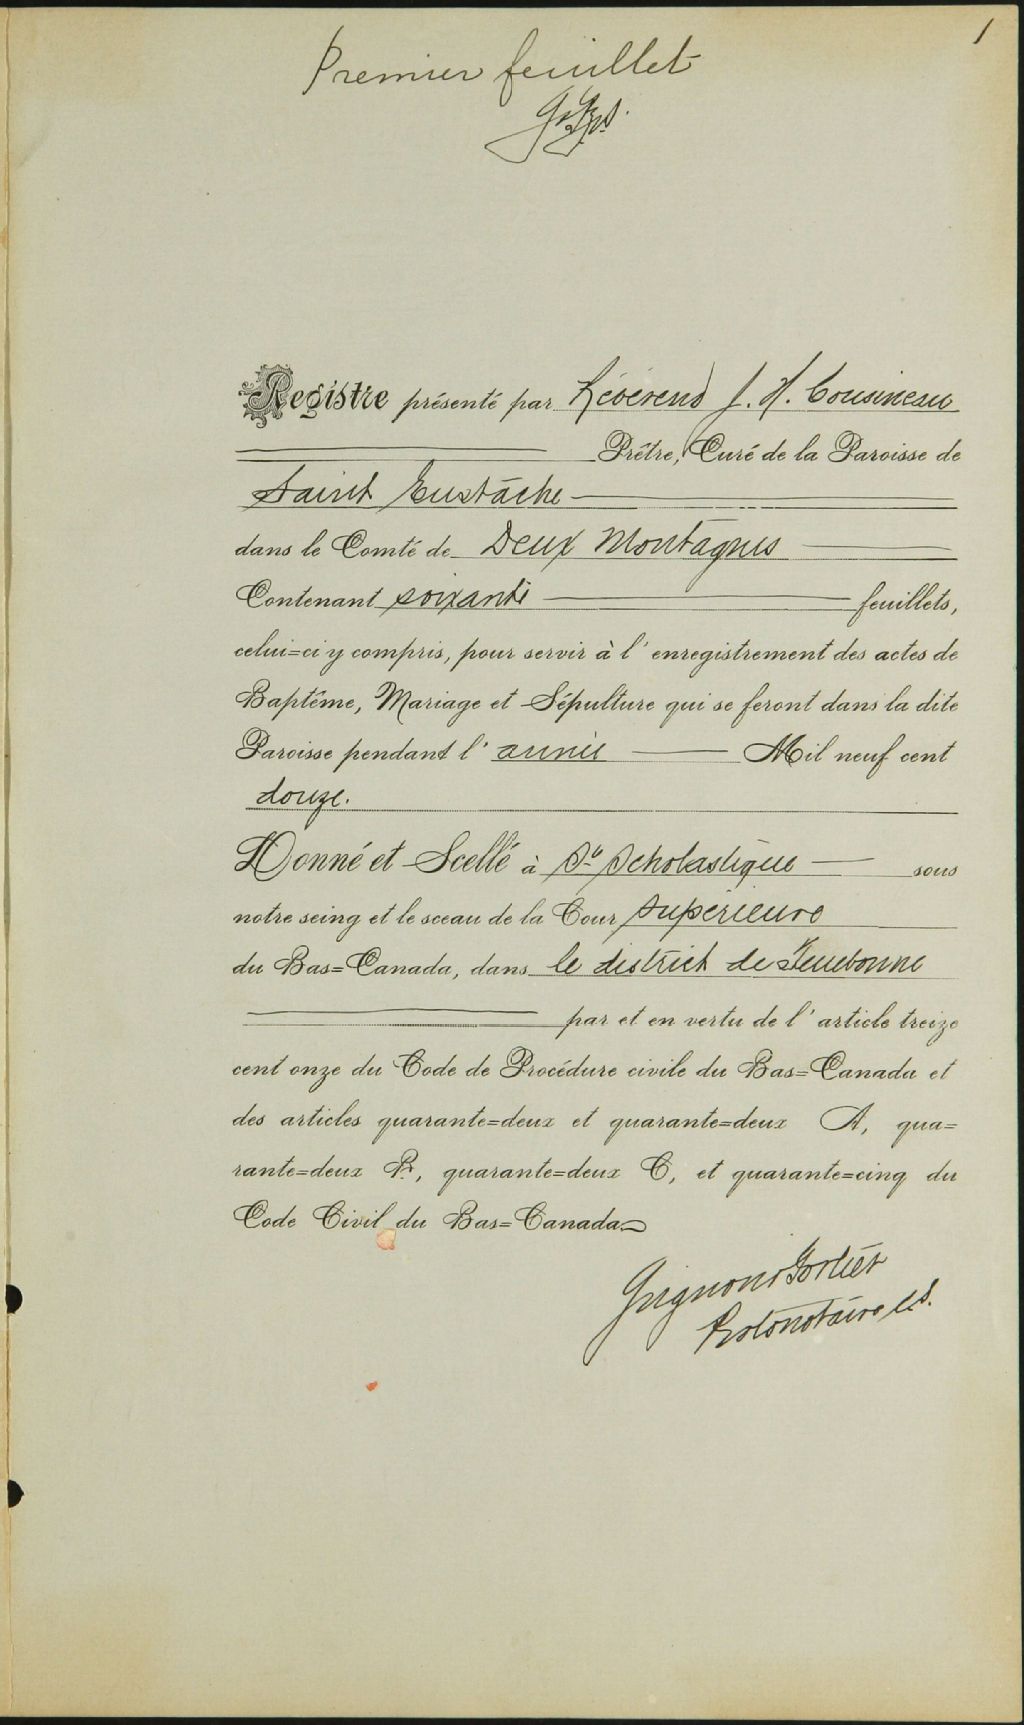 1
Premier feuillet
Registre présenté par Révérend J. H. Cousineau
Prêtre, Curé de la Paroisse de
Saint Eustache
dans le Comté de Deux Montagnes
Contenant soixante feuillets,
celui=ci y compris, pour servir à l'enregistrement des actes de
Baptême, Mariage et Sépulture qui se feront dans la dite
Paroisse pendant l'année Mil neuf cent
douze.
Donné et Scellé à Ste Scholastique sous
notre seing et le sceau de la Cour Supérieure
du Bas=Canada, dans le district de Terrebonne
par et en vertu de l'article treize
cent onze du Code de Procédure civile du Bas=Canada et
des articles quarante=deux et quarante=deux A, qua=
rante=deux B, quarante=deux C, et quarante=cinq du
Code Civil du Bas=Canada
Grignon & Fortier
Protonotaire C.S.